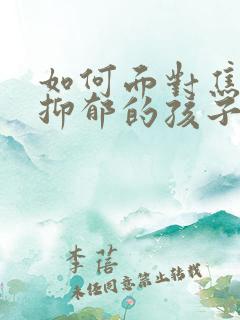 如何面对焦
抑郁的孩子
李蓓
未经同意禁止转载